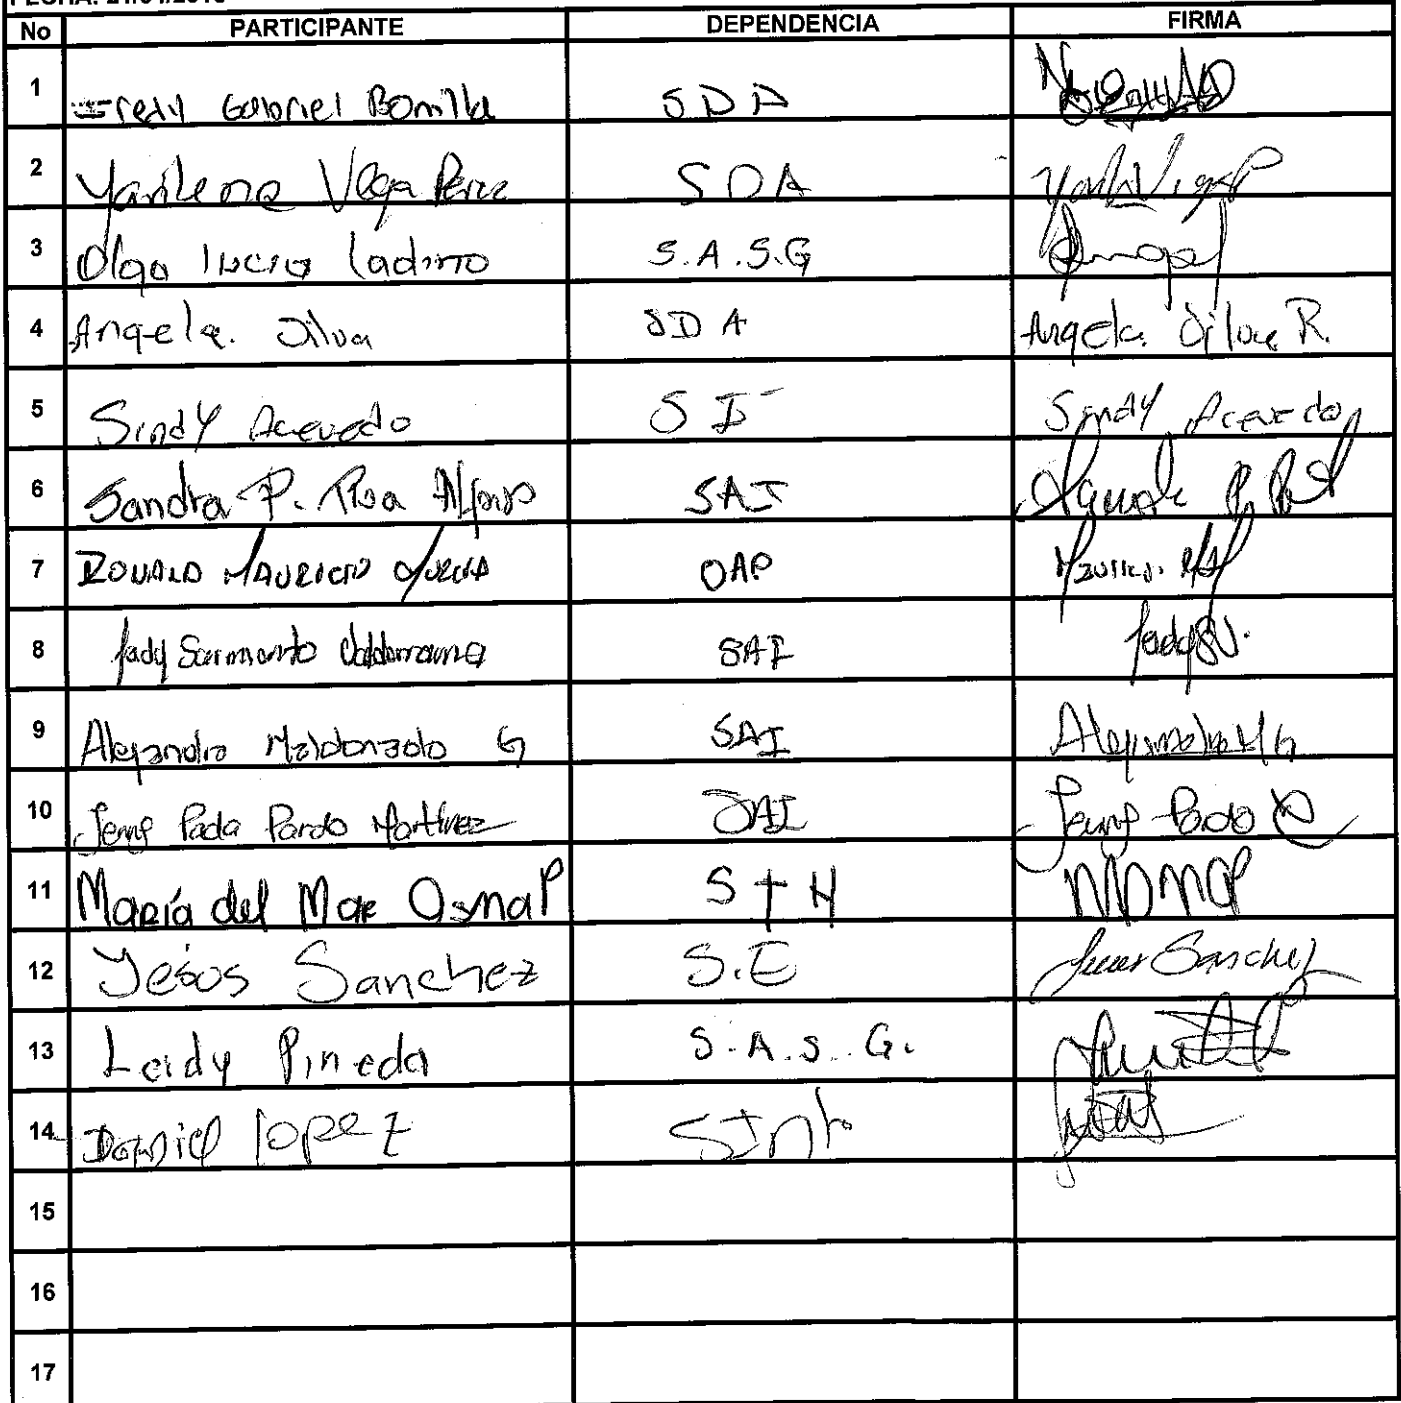 No PARTICIPANTE DEPENDENCIA FIRMA
1 Fredy Gabriel Bonilla SDA
2 Yarilena Vega Perez SDA
3 Olga lucia ladino S.A.S.G
4 Angela. Silva SDA Angela. Silva R.
5 Sindy Acevedo SI Sindy Acevedo
6 Sandra P. Roa Alfonso SAI
7 RONALD MAURICIO OAP
8 Jady Sarmiento Valderrama SAI
9 Alejandra Maldonado G SAI
10 Jenny Paola Pardo Martinez SAI Jenny Pardo
11 María del Mar Osma P STH MDMOP
12 Jesús Sanchez S.E Sanchez
13 Leidy Pineda S.A.S.G.
14 Daniel lopez
15
16
17